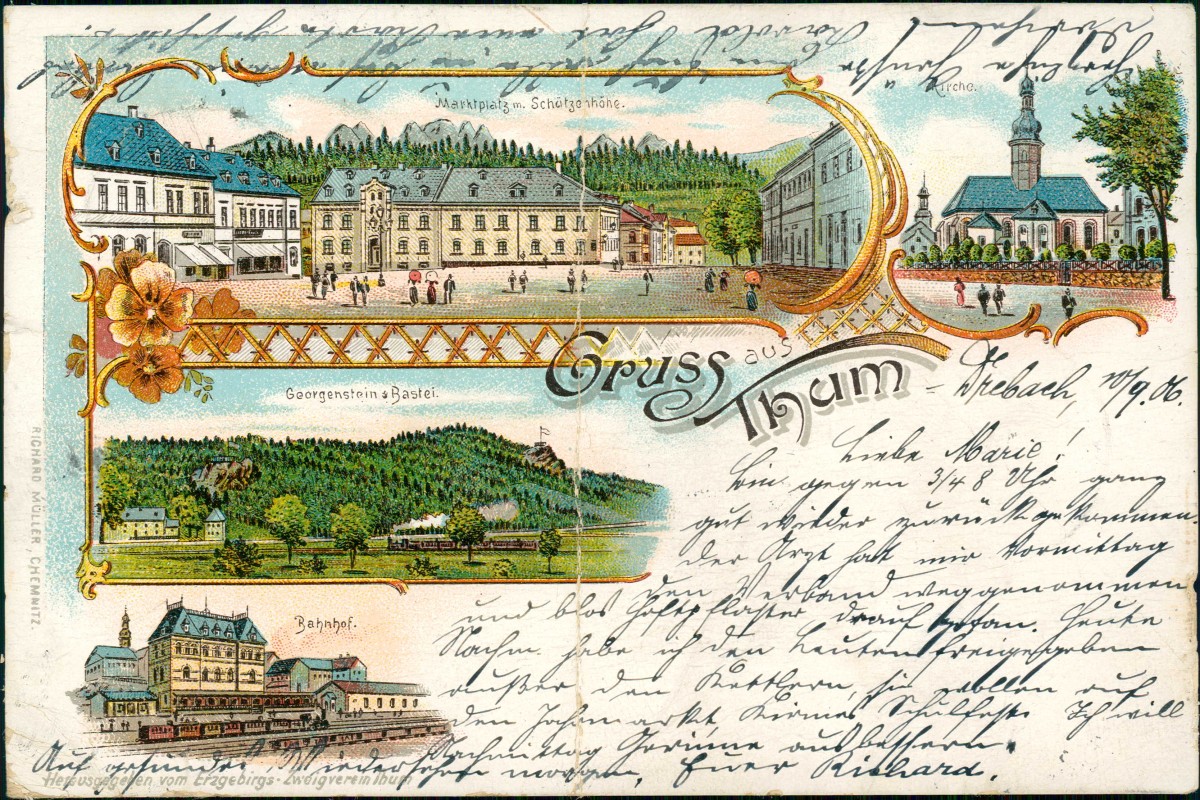 Marktplatz m. Schützenhöhe.
Kirche.
Georgenstein & Bastei.
Gruss aus
Thum
Bahnhof.
RICHARD MÜLLER, CHEMNITZ
Herausgegeben vom Erzgebirgs-Zweigverein Thum
Drebach, 10/9. 06.
Liebe Marie!
Bin gegen 3/4 8 Uhr ganz
gut wieder zurückgekommen
der Arzt hat mir Vormittag
den Verband weggenommen
und blos Heftpflaster drauf getan. Heute
Nachm. habe ich den Leuten freigegeben
außer den Kettlern, sie wollen auf
den Jahrmarkt, Kirmes Schulfest. Ich will
Nachmittag ausbessern.
Auf gesundes Wiedersehen morgen, Euer Richard.